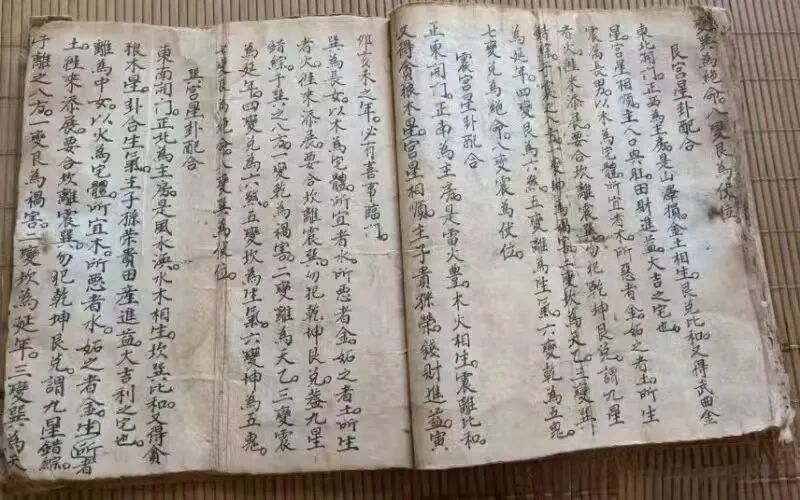 變巽為絕命。八變艮為伏位
艮宮星卦配合
東北開门。正西為主房。是山澤損。金土相生。艮兌比和。又得武曲金
星宮星相順。主人口興旺。田財進益。大吉之宅也
震為長男。以木為宅體。所宜者水。所惡者金。妬之者土。所生
者火。往來添展。要合坎離震巽。勿犯乾坤艮兌。謂九星
錯綜于震之八方。一變坤為禍害。二變坎為天乙。三變巽
為延年。四變艮為六煞。五變離為生氣。六變乾為五鬼
七變兌為絕命。八變震為伏位。
震宮星卦配合
正東開门。正南為主房。是雷火豊。木火相生。震離比和。
又得貪狼木星。宮星相順。主子貴孫榮。錢財進益。寅
卯亥未之年。必有喜事臨门。
巽為長女。以木為宅體。所宜者水。所惡者金。妬之者土。所生
者火。往來添展。要合坎離震巽。勿犯乾坤艮兌。益九星
錯綜于巽之八方。一變乾為禍害。二變離為天乙。三變震
為延年。四變兌為六煞。五變坎為生氣。六變坤為五鬼
七變艮為絕命。八變巽為伏位。
巽宮星卦配合
東南開门。正北為主房。是風水渙。水木相生。坎巽比和。又得貪
狼木星。卦合生氣。主子孫榮貴。田産進益。大吉利之宅也。
離為中女。以火為宅體。所宜木。所惡者水。妬之者金。生所者
土。往來添展。要合坎離震巽。勿犯乾坤艮兌。謂九星錯綜
于離之八方。一變艮為禍害。二變坎為延年。三變巽為天